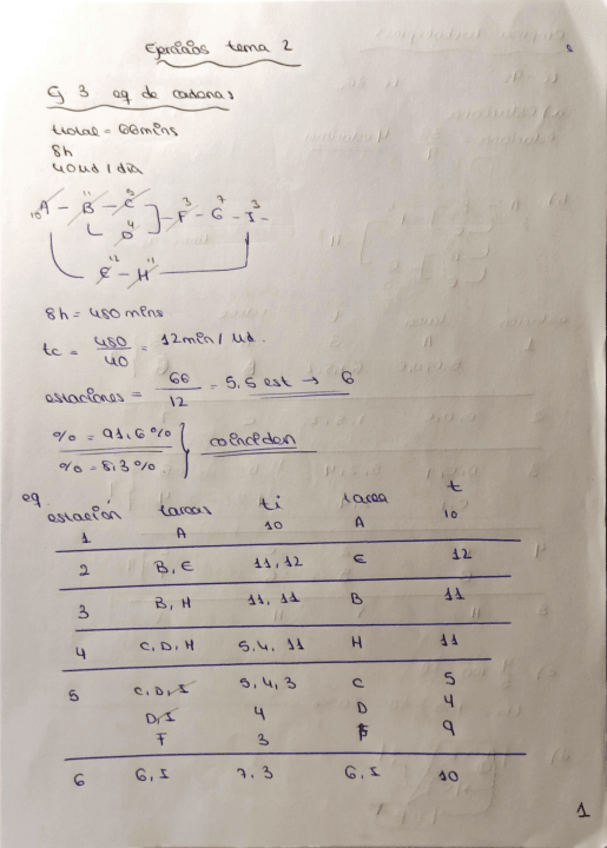 Ejercicios tema 2
Ej 3 eq de cadenas
ttotal = 66 mins
8h
40 ud / día
11 5 3 7 3
10 A - B - C - F - G - I -
4
D
12 11
E - H
8h = 480 mins
tc = 480 / 40 = 12 min / ud.
estaciones = 66 / 12 = 5,5 est → 6
% = 91,6 %
coinciden
% = 8,3 %
eq
estación tareas ti tarea t
1 A 10 A 10
2 B, E 11, 12 E 12
3 B, H 11, 11 B 11
4 C, D, H 5, 4, 11 H 11
5 C, D, I 5, 4, 3 C 5
D, I 4 D 4
F 3 F 9
6 G, I 7, 3 G, I 10
1